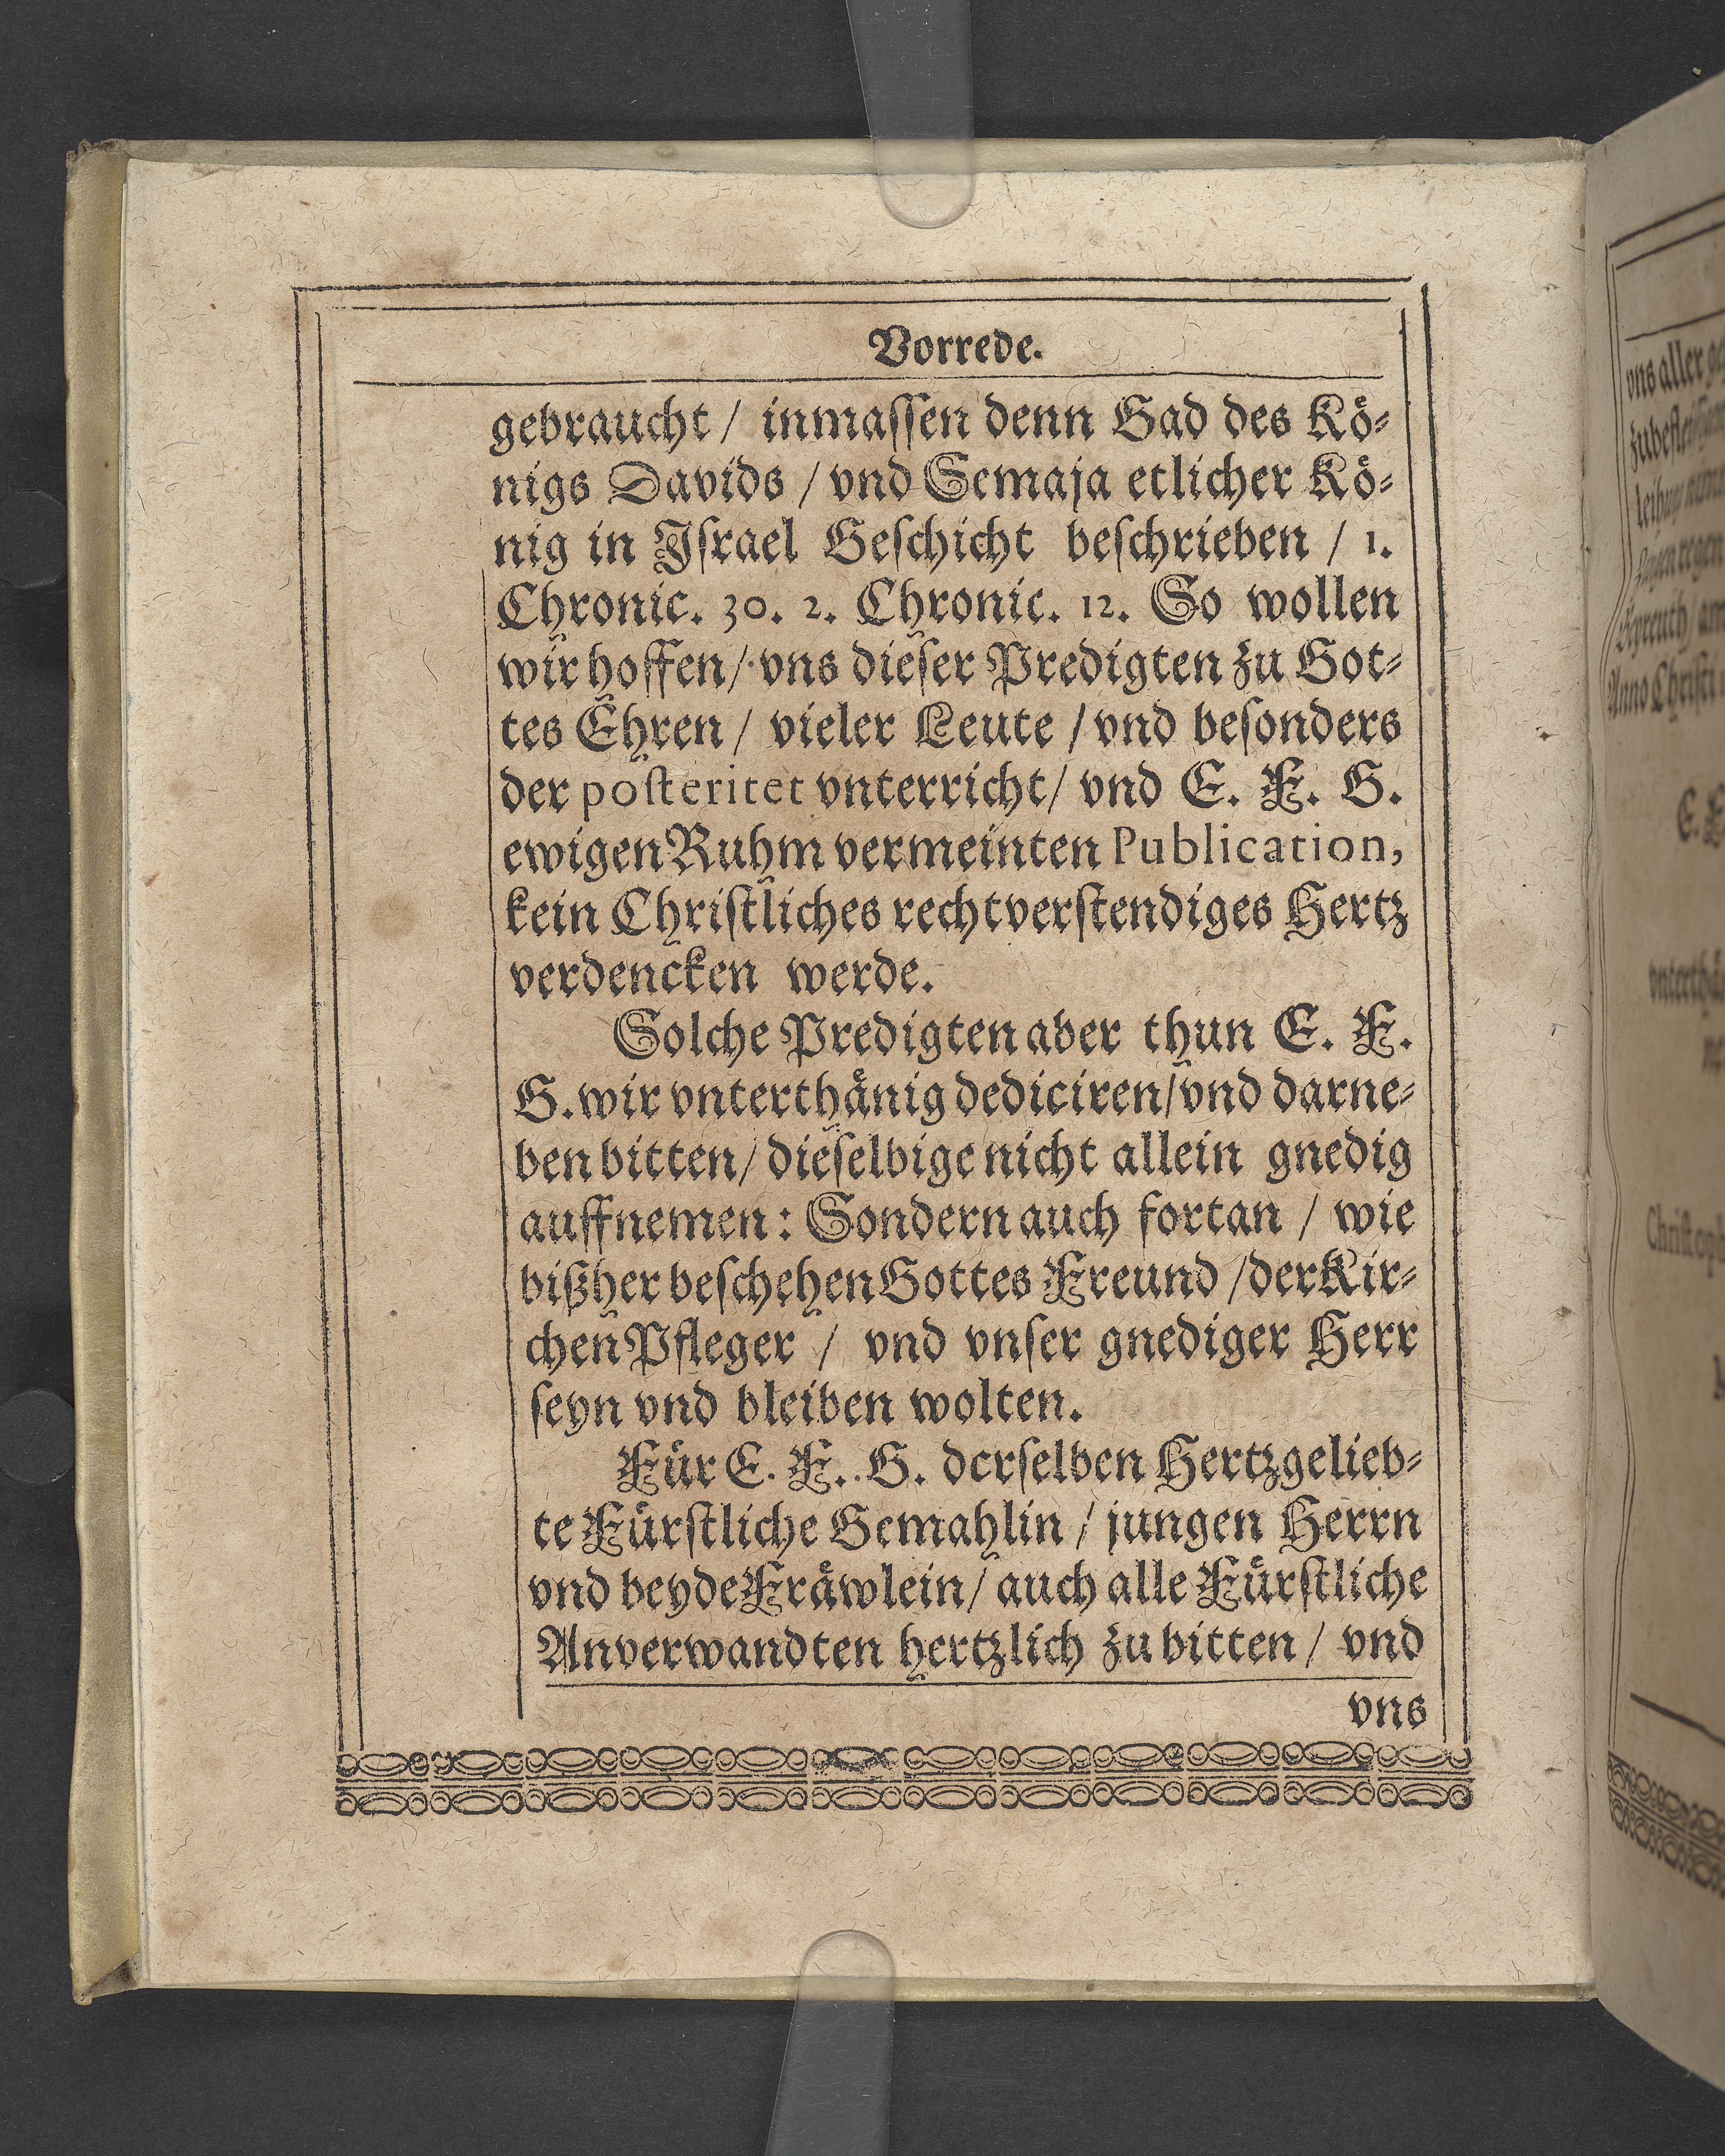 Vorrede.
gebraucht / inmaſſen denn Gad des Kö⸗
nigs Davids / vnd Semaja etlicher Kö⸗
nig in Iſrael Geſchicht beſchrieben / 1.
Chronic. 30. 2. Chronic. 12. So wollen
wir hoffen / vns dieſer Predigten zu Got⸗
tes Ehren / vieler Leute / vnd beſonders
der poſteritet vnterricht / vnd E. F. G.
ewigen Ruhm vermeinten Publication,
kein Chriſtliches rechtverſtendiges Hertz
verdencken werde.
Solche Predigten aber thun E. F.
G. wir vnterthänig dediciren / vnd darne⸗
ben bitten / dieſelbige nicht allein gnedig
auffnemen : Sondern auch fortan / wie
bißher beſchehen Gottes Freund / der Kir⸗
chen Pfleger / vnd vnſer gnediger Herr
ſeyn vnd bleiben wolten.
Für E. F. G. derſelben Hertzgelieb⸗
te Fürſtliche Gemahlin / jungen Herrn
vnd beyde Fräwlein / auch alle Fürſtliche
Anverwandten hertzlich zu bitten / vnd
vns
vns aller
Anno Chriſti